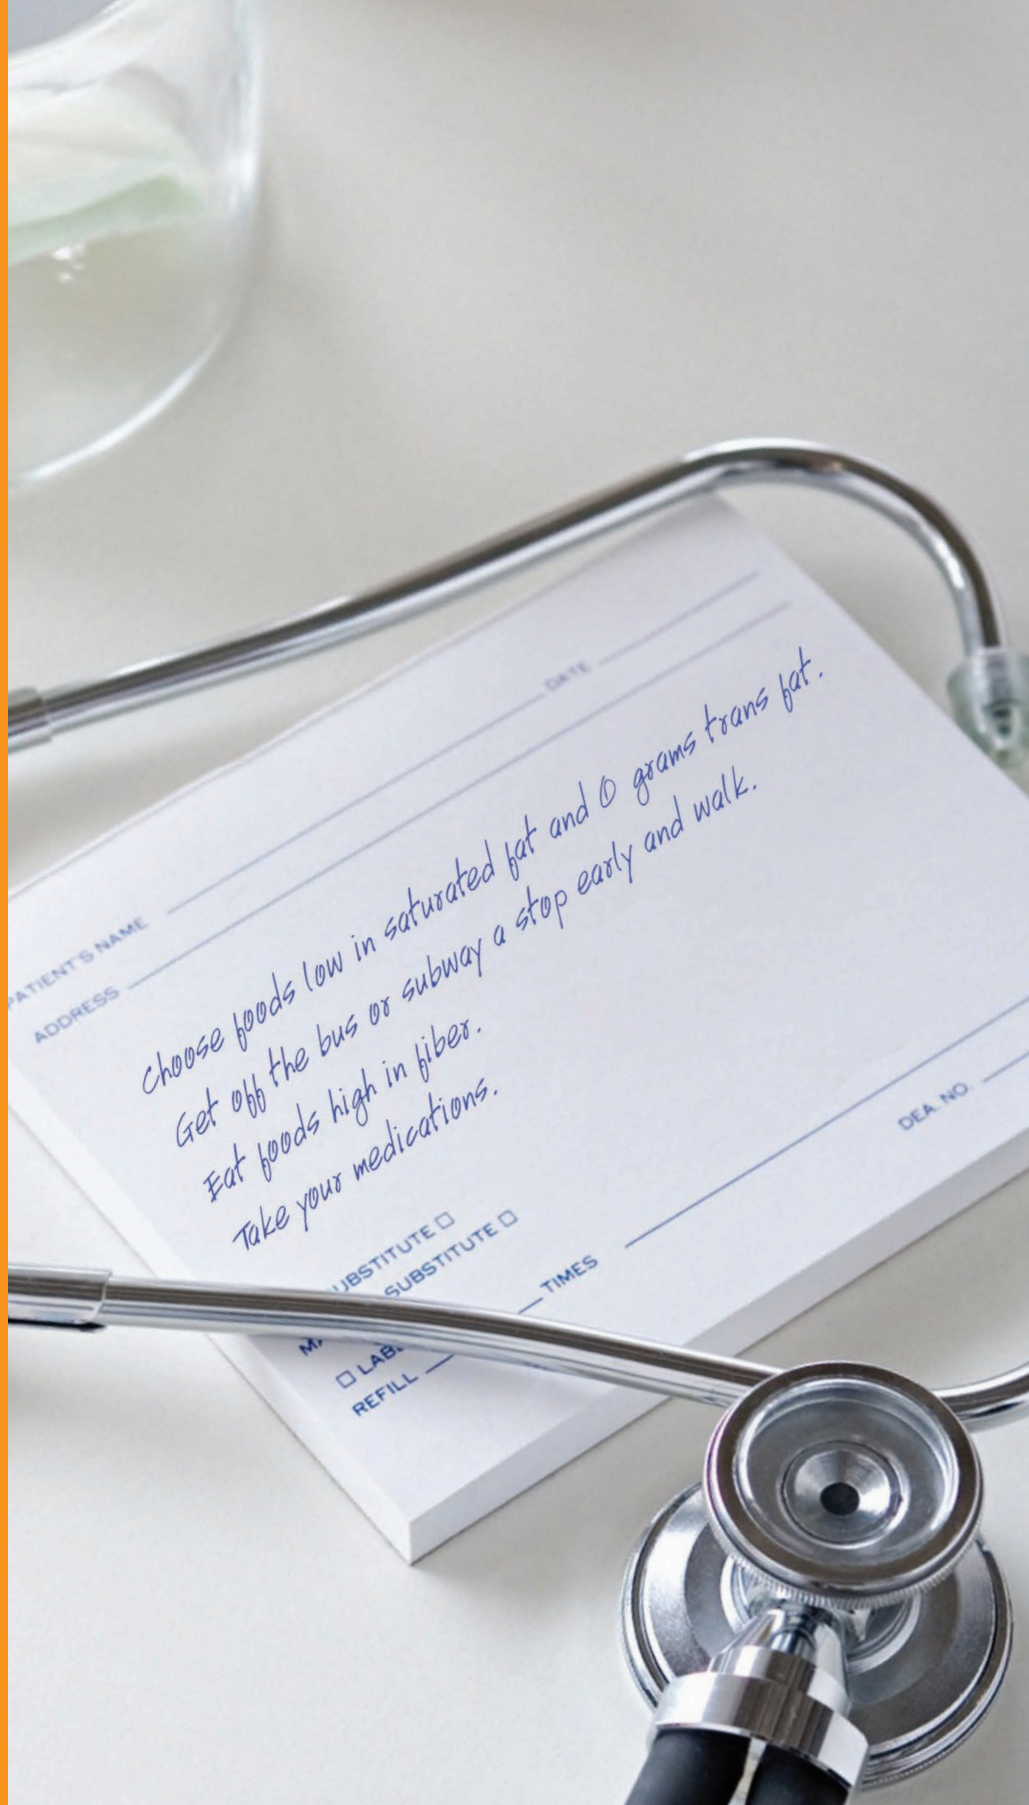 DATE
PATIENT'S NAME
ADDRESS
Choose foods low in saturated fat and 0 grams trans fat.
Get off the bus or subway a stop early and walk.
Eat foods high in fiber.
Take your medications.
SUBSTITUTE
DEA. NO.
TIMES
REFILL